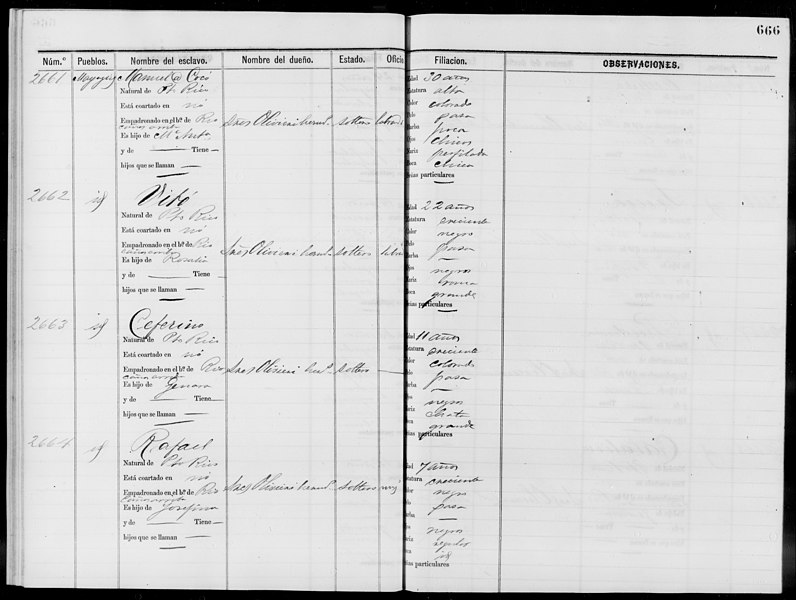 666
Núm.º Pueblos. Nombre del esclavo. Nombre del dueño. Estado. Oficio Filiacion. OBSERVACIONES.
2661 Mayagüez Manuel Cocó
Natural de Pto Rico
Está coartado en nó
Empadronado en el b.º de Rio
Es hijo de Mª
y de — Tiene —
hijos que se llaman —
Sres Olivieri herm.s soltero
Edad 30 años
Estatura alta
Color colorado
Pelo pasa
Barba poca
Ojos chicos
Nariz perfilada
Boca chica
Señas particulares —
2662 id Vitó
Natural de Pto Rico
Está coartado en nó
Empadronado en el b.º de Rio
Es hijo de Rosalia
y de — Tiene —
hijos que se llaman —
Sres Olivieri herm.s soltero
Edad 22 años
Estatura creciente
Color negro
Pelo pasa
Barba —
Ojos negros
Nariz
Boca grande
Señas particulares —
2663 id Ceferino
Natural de Pto Rico
Está coartado en nó
Empadronado en el b.º de Rio
Es hijo de Genara
y de — Tiene —
hijos que se llaman —
Sres Olivieri her.s soltero —
Edad 11 años
Estatura creciente
Color colorado
Pelo pasa
Barba —
Ojos negros
Nariz chata
Boca grande
Señas particulares
2664 id Rafael
Natural de Pto Rico
Está coartado en nó
Empadronado en el b.º de Rio
Es hijo de Josefina
y de — Tiene —
hijos que se llaman —
Sres Olivieri herm.s soltero
Edad 7 años
Estatura creciente
Color negro
Pelo pasa
Barba —
Ojos negros
Nariz regular
Boca id
Señas particulares